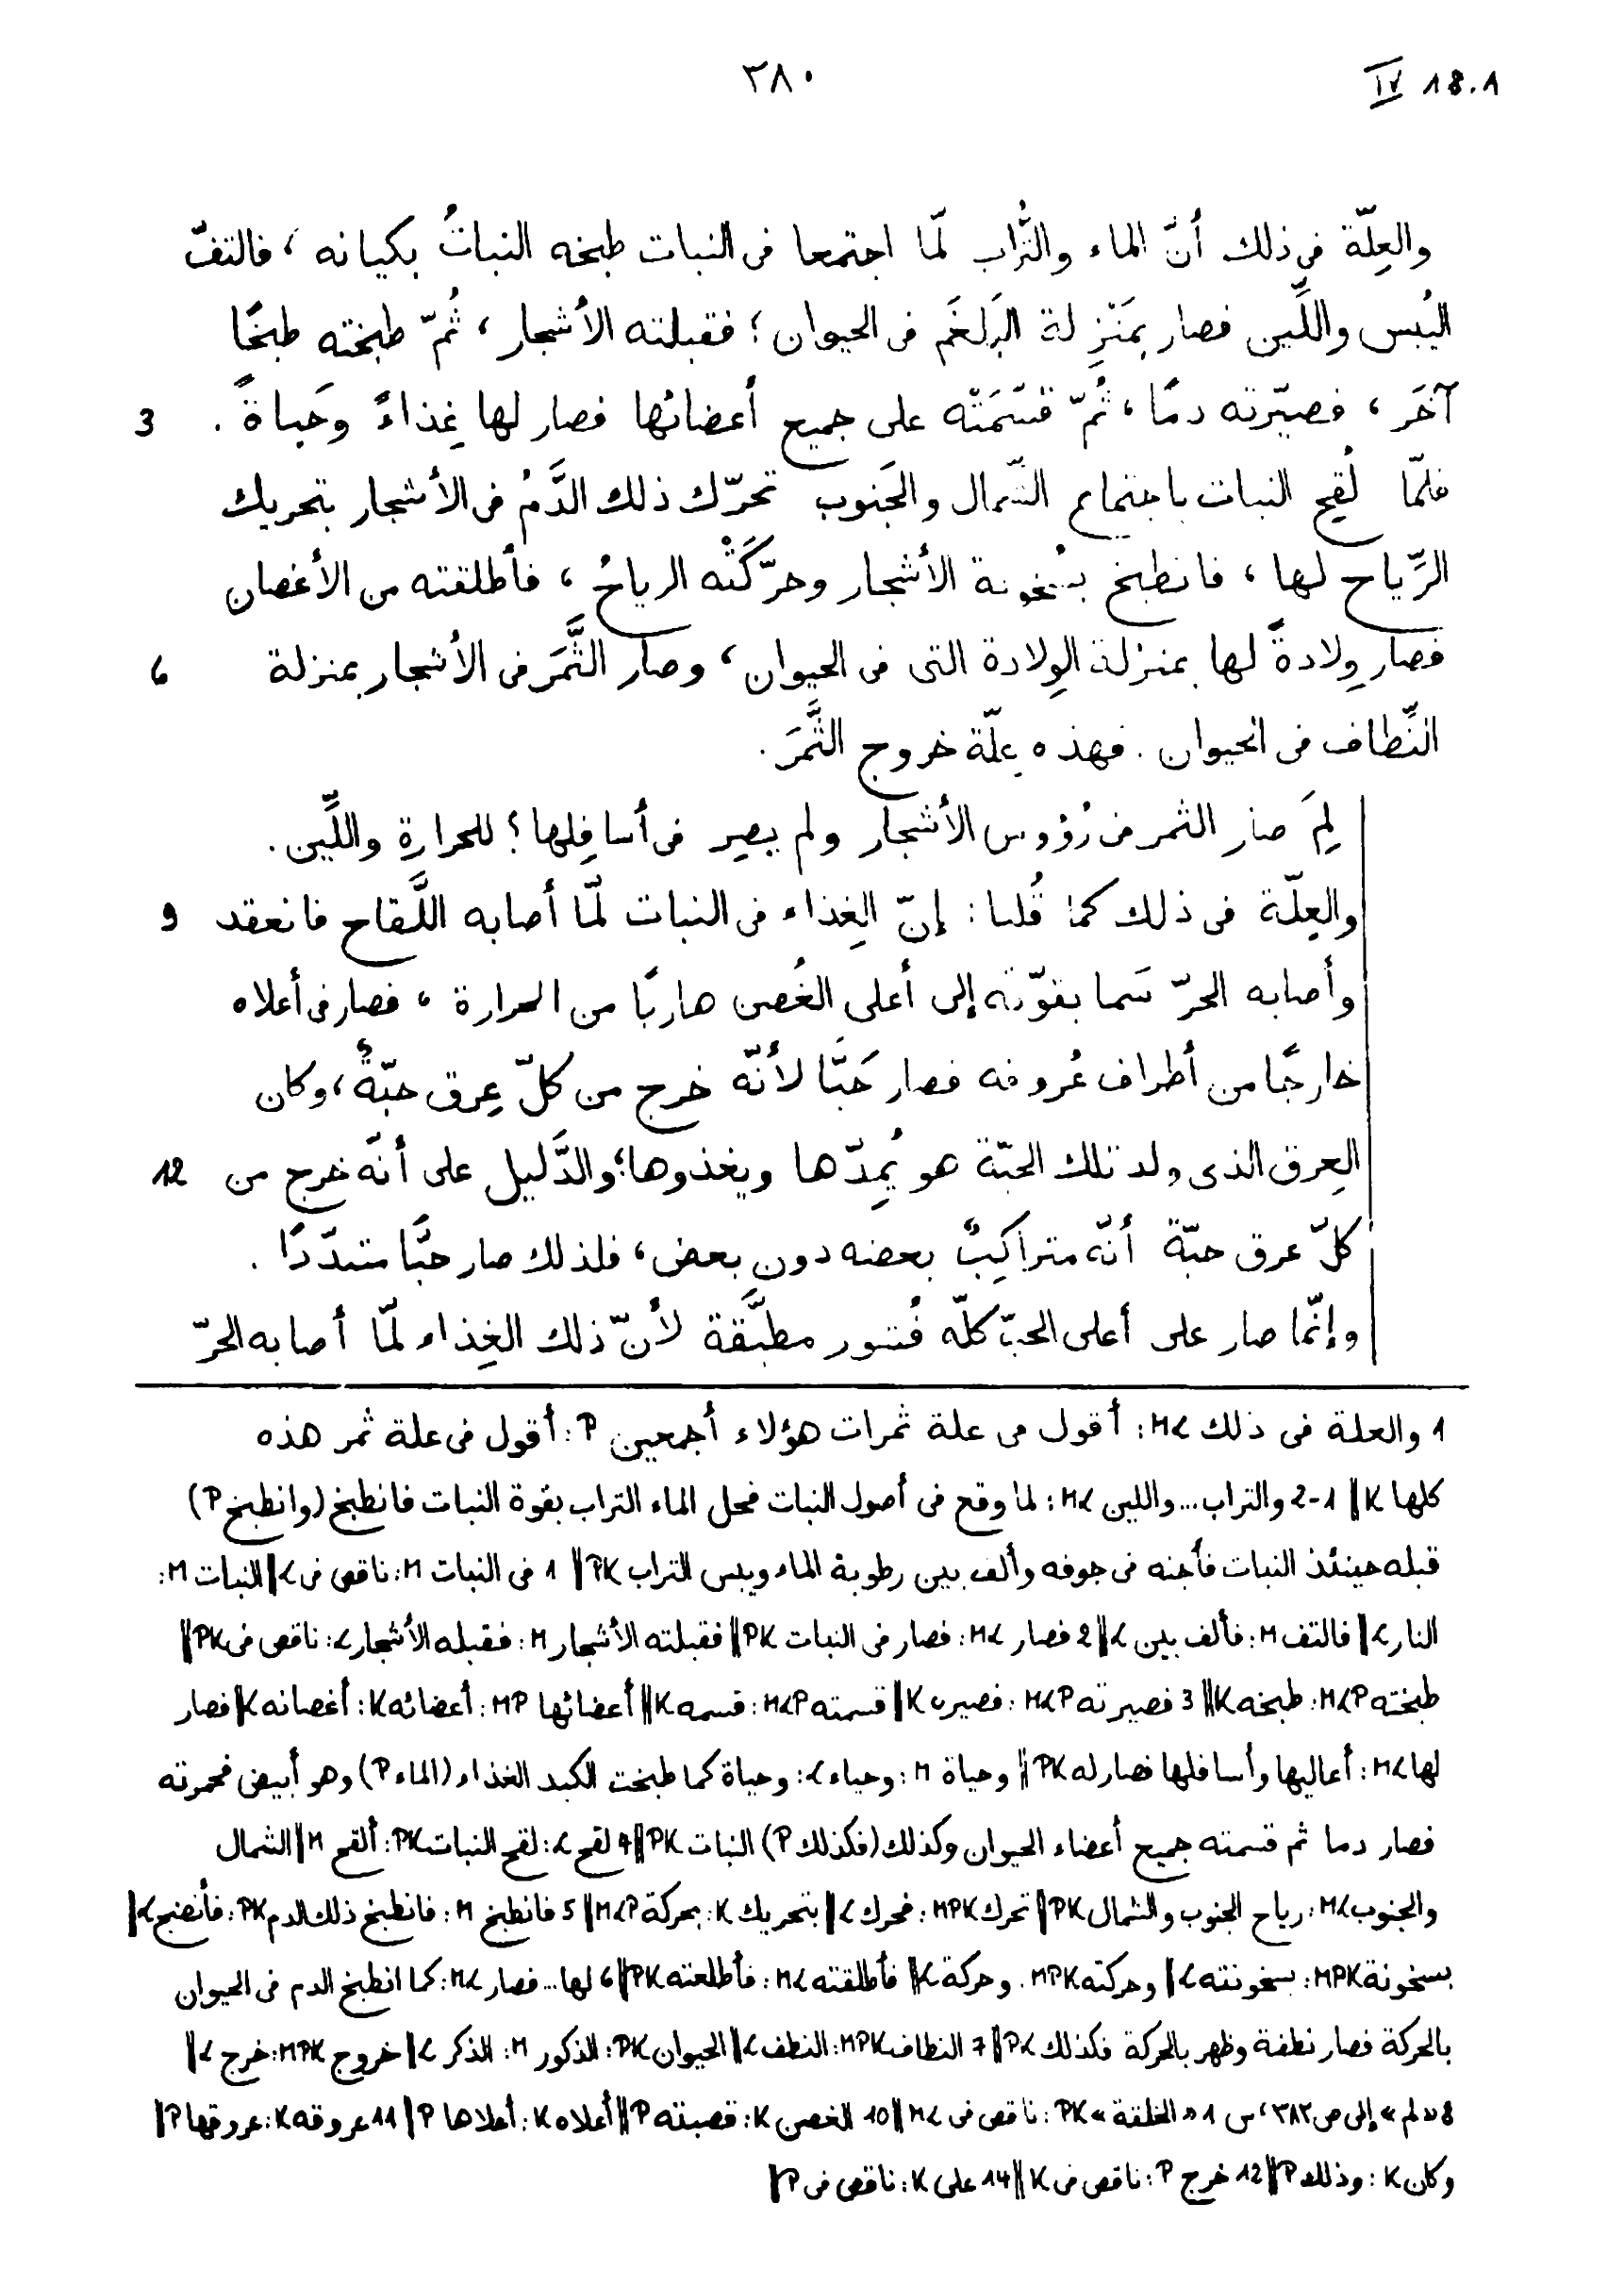 IV 18.1
٣٨٠
والعِلّة فى ذلك أنّ الماء والتُّراب لمّا اجتمعا فى النبات طبخه النباتُ بكيانه ، فالتفّ
اليُبس واللِّين فصار بمَنْزِلة البَلغَم فى الحيوان ؛ فقبلته الأشجار ، ثُمّ طبخته طبخًا
آخَر ، فصيّرته دمًا ، ثُمّ قسّمَتْه على جميع أعضائها فصار لها غِذاءً وحَياةً . 3
فلمّا لُقِح النبات باجتماع الشّمال والجَنوب تحرّك ذلك الدَّمُ فى الأشجار بتحريك
الرِّياح لها ، فانطبخ بسُخونة الأشجار وحرّكَتْه الرياحُ ، فأطلقته من الأغصان
فصار وِلادةً لها بمنزلة الوِلادة التى فى الحيوان ، وصار الثَّمَر فى الأشجار بمنزلة 6
النِّطاف فى الحيوان . فهذه علّة خروج الثَّمَر .
لِمَ صار الثمر فى رُؤوس الأشجار ولم يصِر فى أسافِلها ؟ للحرارة واللِّين .
والعِلّة فى ذلك كما قُلنا : إنّ الغِذاء فى النبات لمّا أصابه اللَّقاح فانعقد 9
وأصابه الحرّ سَما بقوّته إلى أعلى الغُصن هاربًا من الحرارة ، فصار فى أعلاه
خارجًا من أطراف عُروقه فصار حَبًّا لأنّه خرج من كلّ عِرق حبّةٌ ، وكان
العِرق الذى ولد تلك الحبّة هو يُمِدّها ويغذوها ؛ والدَّليل على أنّه خرج من 12
كلّ عرق حبّة أنّه متراكِبٌ بعضه دون بعض ، فلذلك صار حبًّا متبدّدًا .
وإنّما صار على أعلى الحبّ كلّه قُشور مطبَّقة لأنّ ذلك الغِذاء لمّا أصابه الحرّ
1 والعلة فى ذلك ML: أقول فى علة ثمرات هؤلاء أجمعين P: أقول فى علة ثمر هذه
كلها K || 1-2 والتراب... واللين ML: لما وقع فى أصول النبات فحل الماء التراب بقوة النبات فانطبخ (وانطبخ P)
قبله حينئذ النبات فأجنه فى جوفه وألف بين رطوبة الماء ويبس التراب PK || 1 فى النبات M: ناقص فى L || النبات M:
النار L || فالتف M: فألف بين L || 2 فصار ML: فصار فى النبات PK || فقبلته الأشجار M: فقبله الأشجار L: ناقص فى PK ||
طبخته MLP: طبخه K || 3 فصيرته MLP: فصيره K || قسمته MLP: قسمه K || أعضائها MP: أعضائه K: أغصانه K || فصار
لها ML: أعاليها وأسافلها فصار له PK || وحياة M: وحياء L: وحياة كما طبخت الكبد الغذاء (الماء P) وهو أبيض فحمرته
فصار دما ثم قسمته جميع أعضاء الحيوان وكذلك (فكذلك P) النبات PK || 4 لقح L: لقح النبات PK: ألقح M || الشمال
والجنوب ML: رياح الجنوب والشمال PK || تحرك MPK: فحرك L || بتحريك K: بحركة MLP || 5 فانطبخ M: فانطبخ ذلك الدم PK: فأنضج L ||
بسخونة MPK: بسخونته L || وحركته MPK: وحركة L || فأطلقته ML: فأطلعته PK || 6 لها... فصار ML: كما انطبخ الدم فى الحيوان
بالحركة فصار نطفة وظهر بالحركة فكذلك PL || 7 النطاف MPK: النطف L || الحيوان PK: الذكور M: الذكر L || خروج MPK: خرج L ||
8 «لم» إلى ص ٣٨٢، س 1 «الخلقة» PK: ناقص فى ML || 10 الغصن K: قصبته P || أعلاه K: أعلاها P || 11 عروقه K: عروقها P ||
وكان K: وذلك P || 12 خرج P: ناقص فى K || 14 على K: ناقص فى P ||